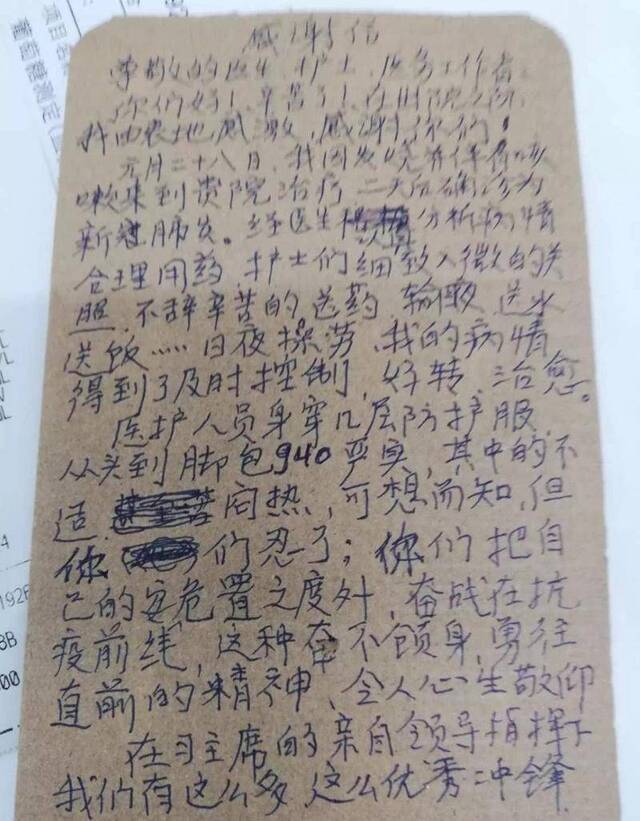 感谢信
尊敬的医生、护士、医务工作者:
你们好!辛苦了!在出院之际,
我由衷地感激,感谢你们!
元月二十八日,我因发烧并伴有咳
嗽来到贵院治疗二天后确诊为
新冠肺炎。经医生 分析病情
合理用药 护士们细致入微的关
照 不辞辛苦的送药、输液、送水
送饭……日夜操劳、我的病情
得到了及时控制,好转、治愈。
医护人员身穿几层防护服
从头到脚包940严实,其中的不
适 闷热,可想而知,但
你 们忍了;你们把自
己的安危置之度外,奋战在抗
疫前线,这种奋不顾身,勇往
直前的精神,令人心生敬仰
在习主席的亲自领导指挥下
我们有这么多,这么优秀冲锋
项目名
葡萄糖测定(
192